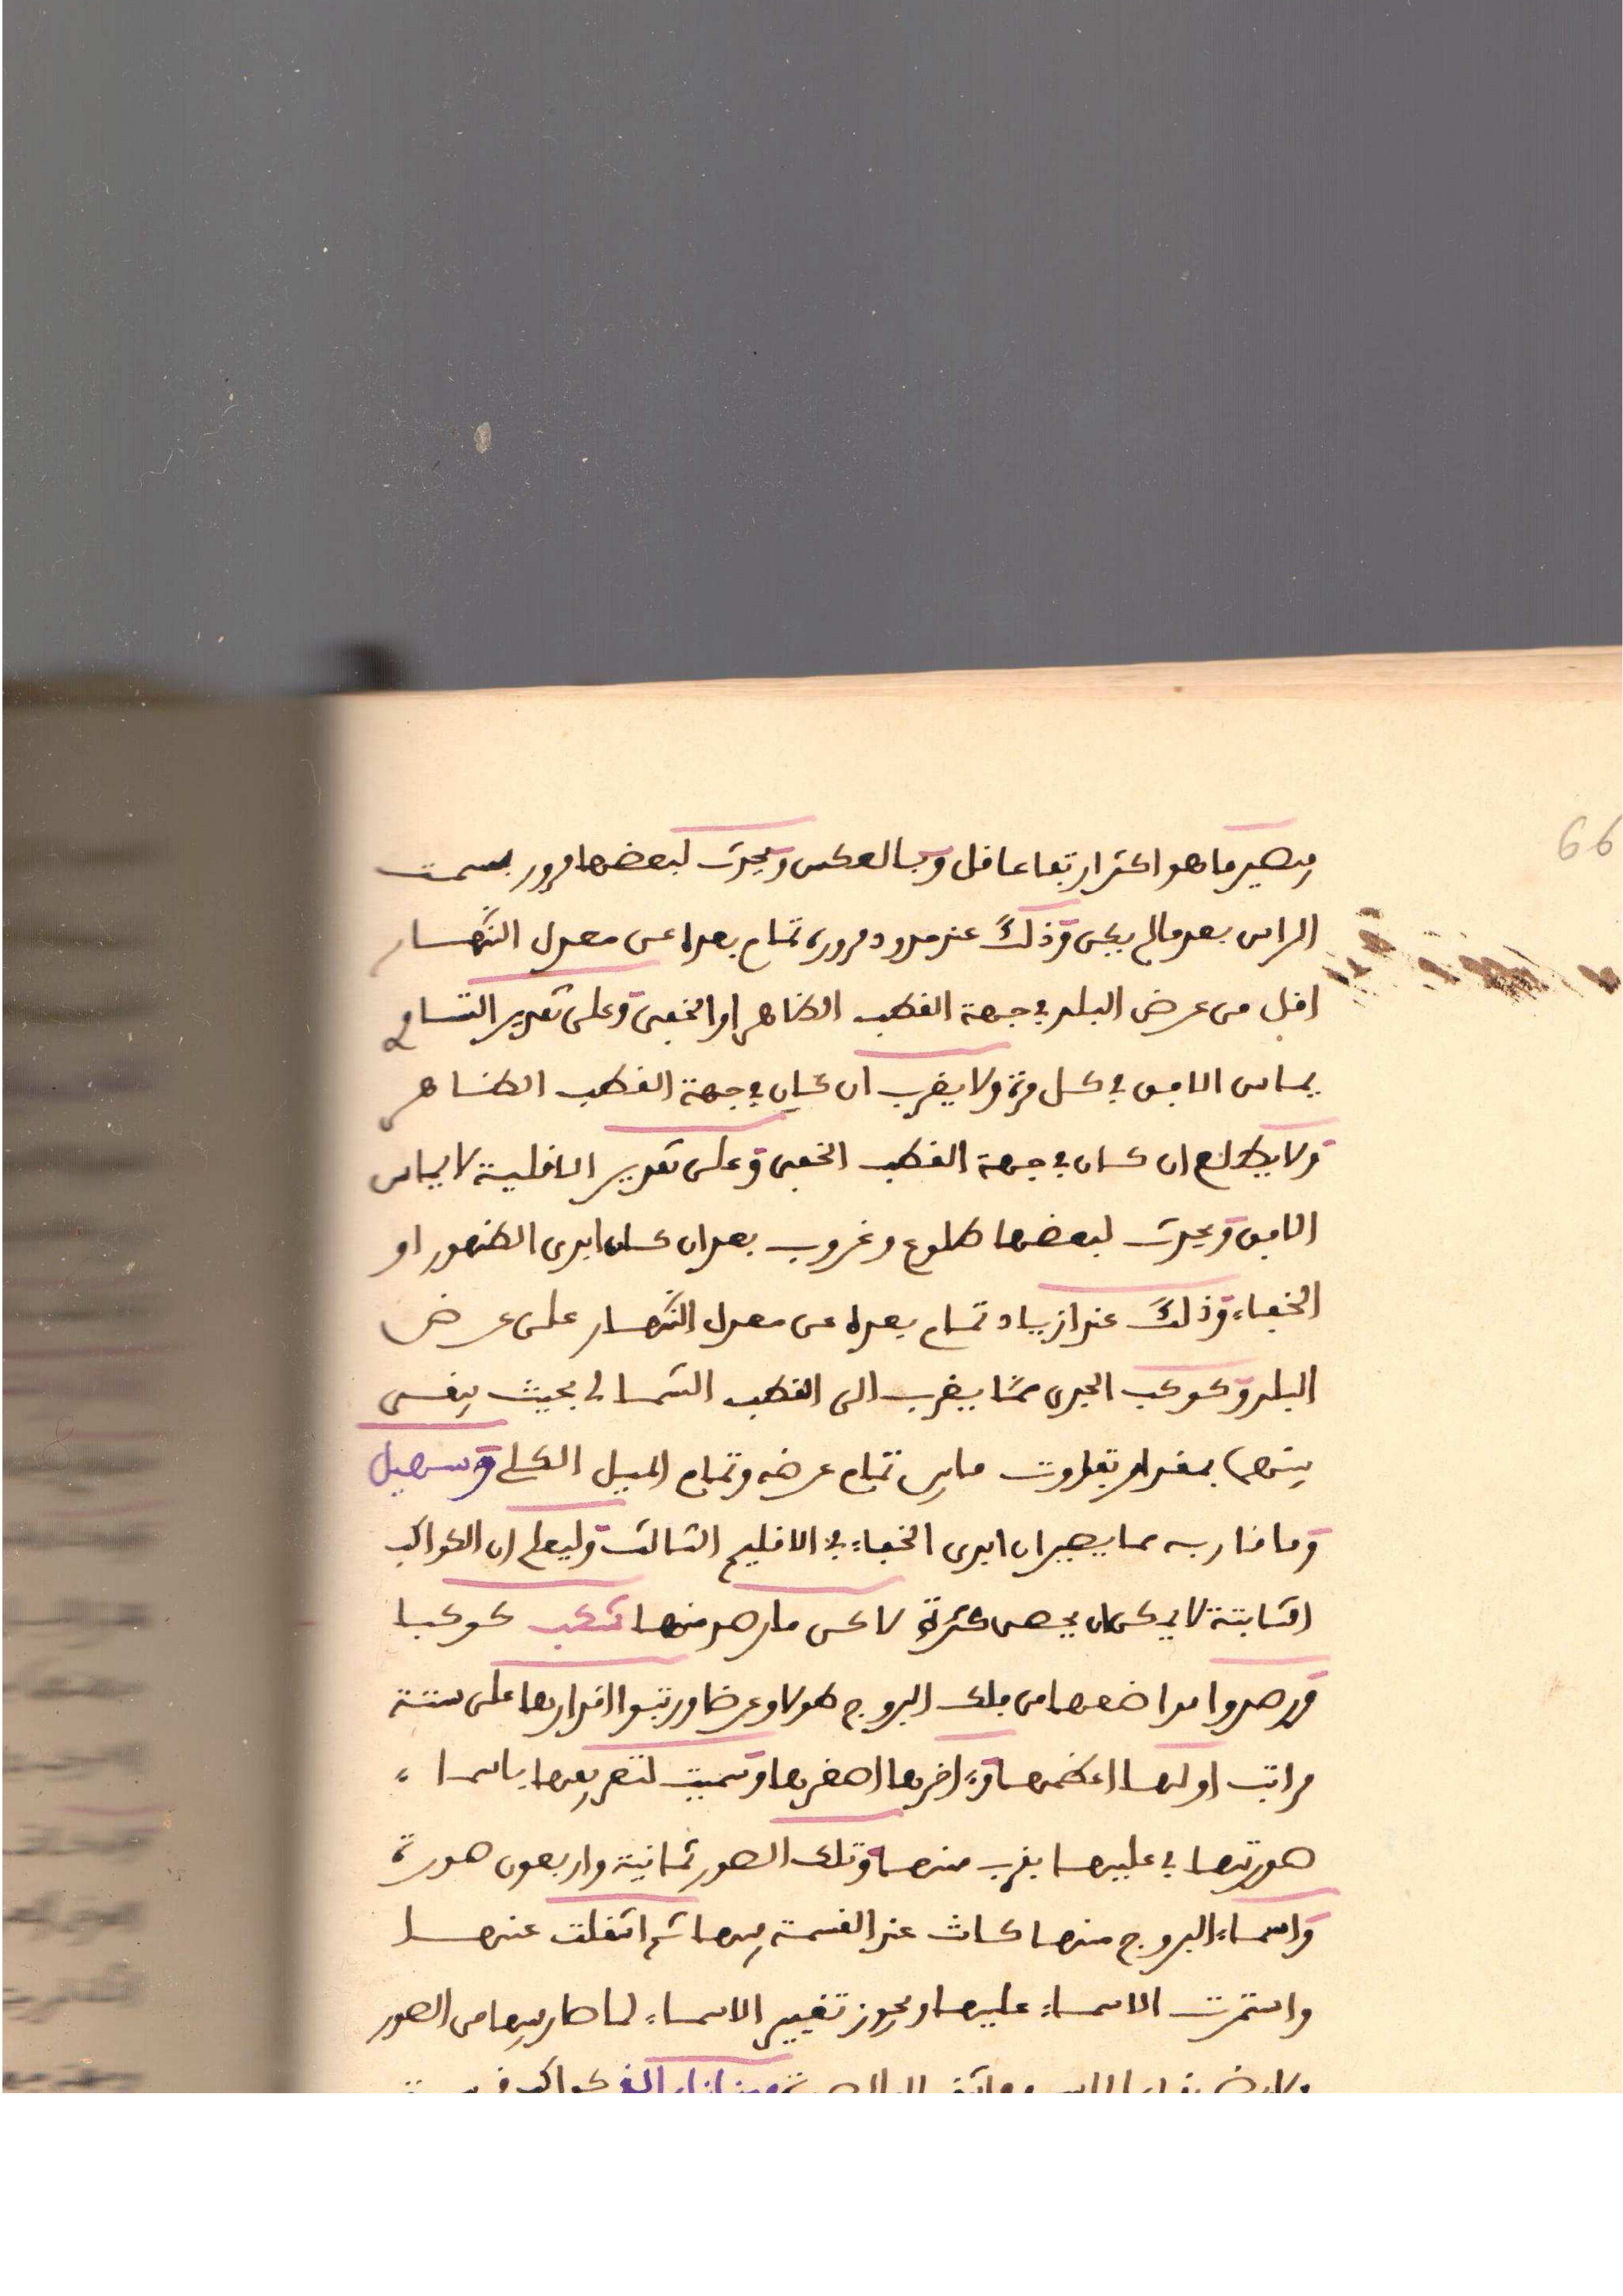 66
فيصير ما هو اكثر ارتفاعا اقل وبالعكس ويحدث لبعضها مرور بسمت
الراس بعد ما لم يكن وذلك عند مرور تمام بعده عن معدل النهار
اقل من عرض البلد في جهة القطب الظاهر او الخفى وعلى تقدير التساوي
يماس الافق في كل مرة ولا يغرب ان كان في جهة القطب الظاهر
ولا يطلع ان كان في جهة القطب الخفى وعلى تقدير الاقلية لا يماس
الافق ويحدث لبعضها طلوع وغروب بعد ان كان ابدى الظهور او
الخفاء وذلك عند ازيياد تمام بعده عن معدل النهار على عرض
البلد وكوكب الجدى ممّا يقرب الى القطب الشمالى بحيث يبقى
بينهما بمقدار تفاوت ما بين تمام عرضه وتمام الميل الكلي وسهيل
وما قاربه مما يصيران ابدى الخفاء في الاقليم الثالث وليعلم ان الكواكب
الثابتة لا يمكن ان يحصى كثرة لاكن ما رصد منها غكب كوكبا
ورصدوا مواضعها من فلك البروج طولا وعرضا ورتبوا اقدارها على ستة
مراتب اولها اعظمها واخرها اصغرها وسميت لتعريفها باسماء
صورتها في عليها بقرب منها وتلك الصور ثمانية واربعون صورة
واسماء البروج منها كانت عند القسمة فيها ثم انتقلت عنها
واستمرت الاسماء عليها ويجوز تغيير الاسماء لما صار فيها من الصور